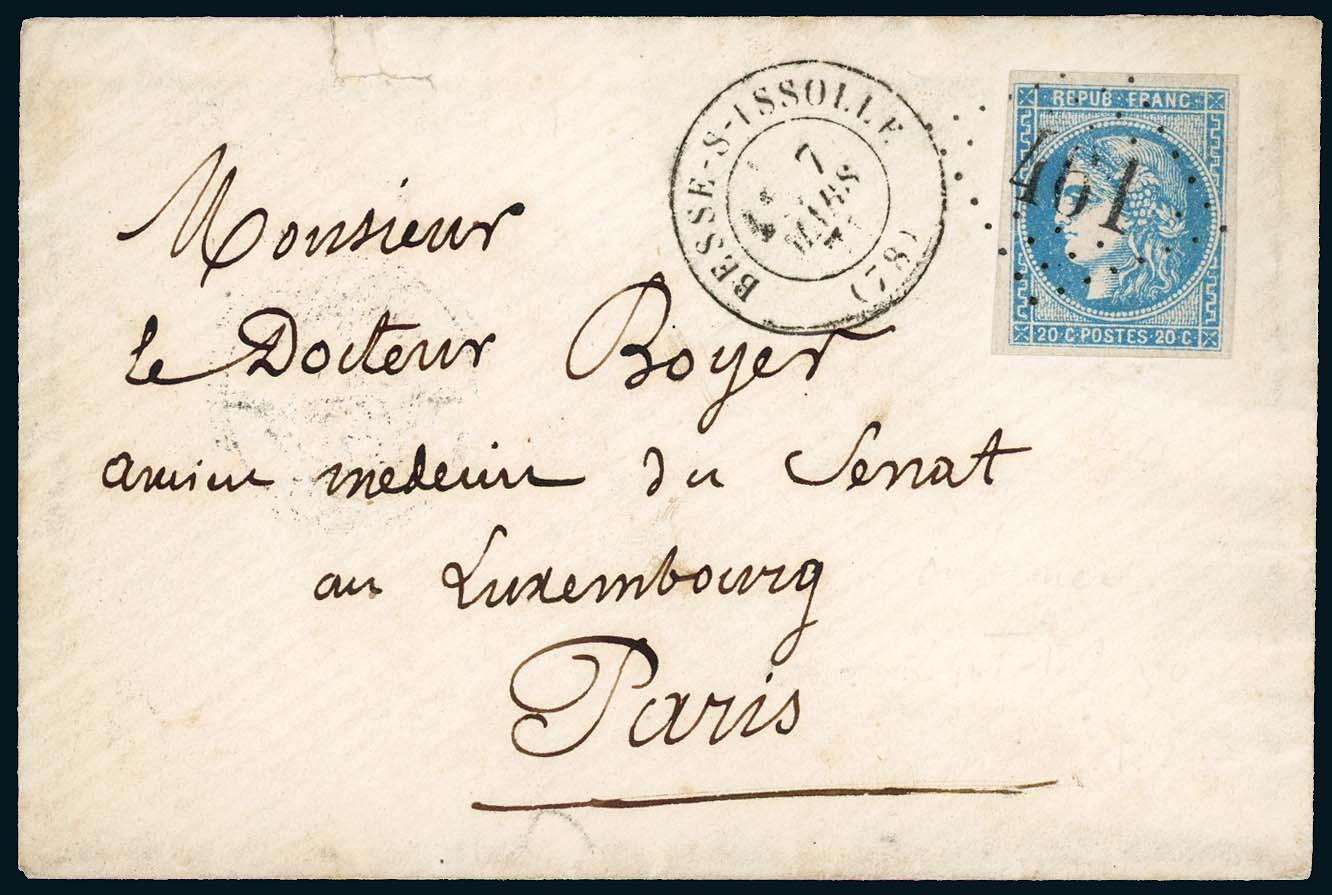 Monsieur
le Docteur Boyer
ancien medecin du Senat
au Luxembourg
Paris
BESSE-S-ISSOLLE
7
MARS
71
(78)
461
REPUB·FRANC·
20·C·POSTES·20·C·